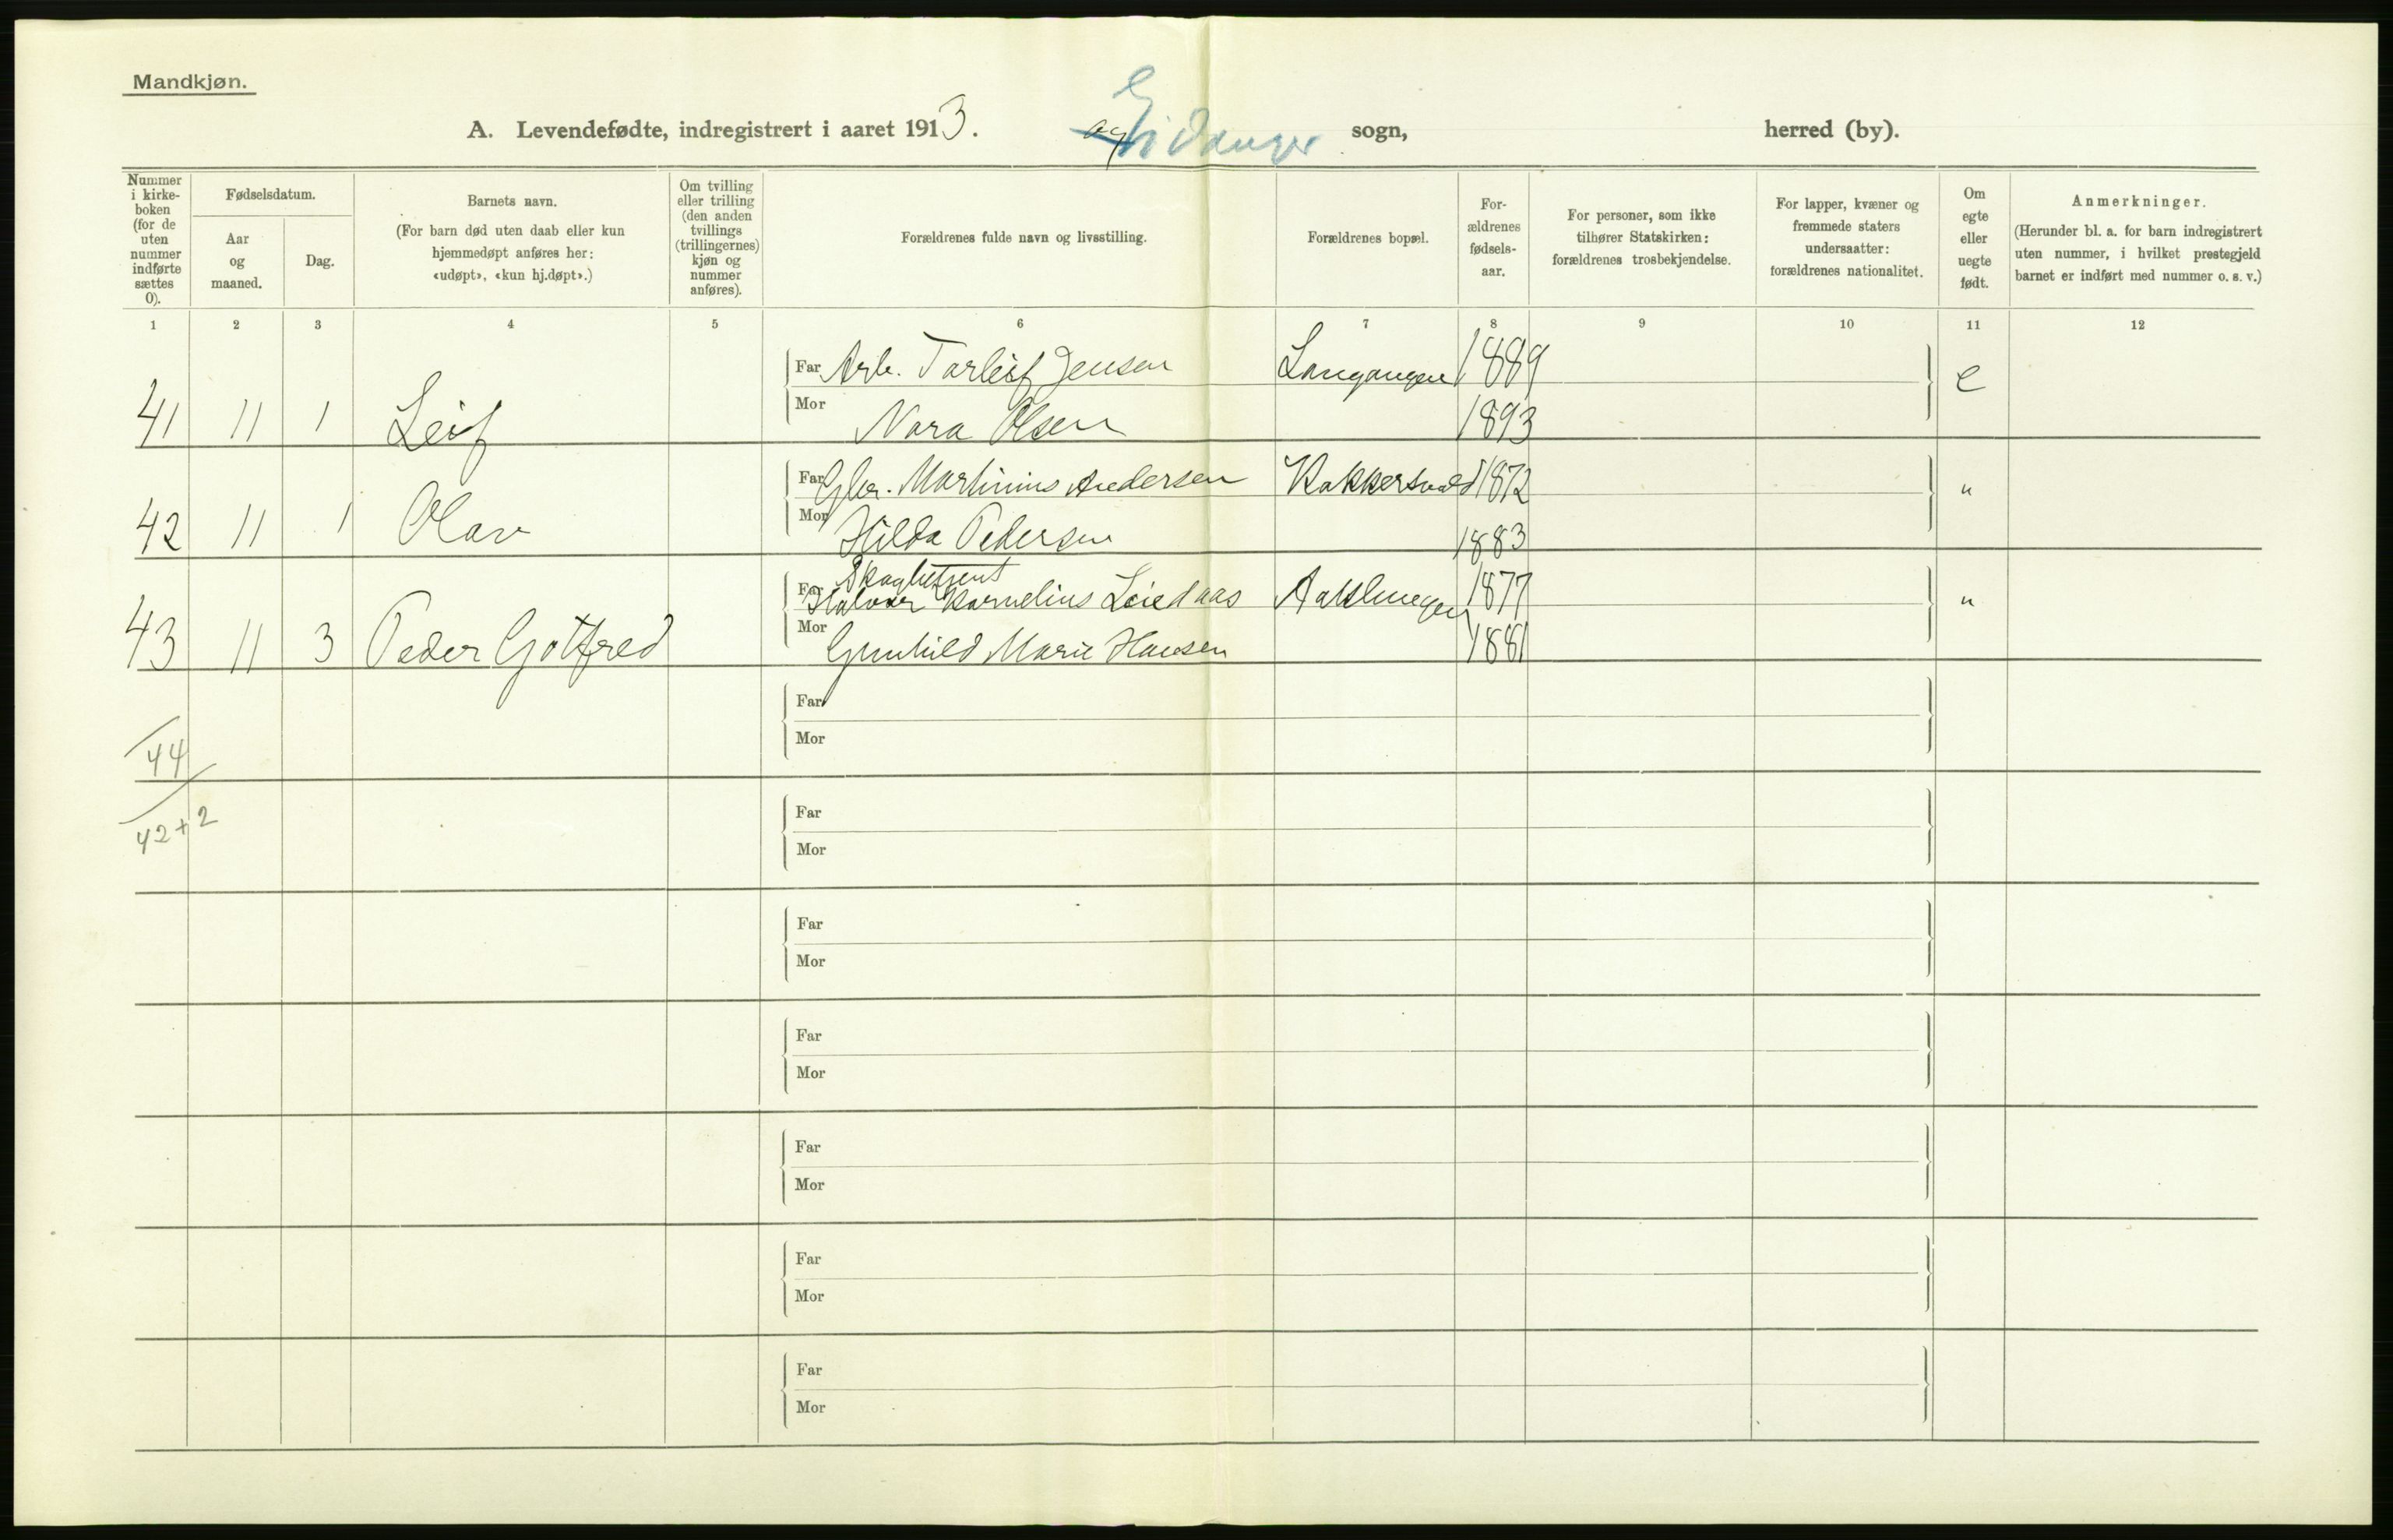 Mandkjøn.
A. Levendefødte, indregistrert i aaret 1913. Eidanger sogn, herred (by).
Nummer i kirke-boken (for de uten nummer indførte sættes 0).
Fødselsdatum.
Aar og maaned.
Dag.
Barnets navn.
(For barn død uten daab eller kun hjemmedøpt anføres her: «udøpt», «kun hj.døpt».)
Om tvilling eller trilling (den anden tvillings (trillingernes) kjøn og nummer anføres).
Forældrenes fulde navn og livsstilling.
Forældrenes bopæl.
For-ældrenes fødsels-aar.
For personer, som ikke tilhører Statskirken: forældrenes trosbekjendelse.
For lapper, kvæner og fremmede staters undersaatter: forældrenes nationalitet.
Om egte eller uegte født.
Anmerkninger.
(Herunder bl. a. for barn indregistrert uten nummer, i hvilket prestegjeld barnet er indført med nummer o. s. v.)
1 2 3 4 5 6 7 8 9 10 11 12
Far Arb. Tarleif Jensen Langangen 1889 e
41 11 1 Leif Mor Nora Olsen 1893
Far Gbr. Martinius Andersen Kokkersvold 1872 "
42 11 1 Olav Mor Hilda Pedersen 1883
Skogbetjent
Far Halvor Kornelius Leiedaas 1877 "
43 11 3 Peder Gotfred Mor Gunhild Marie Hansen 1881
Far
44 Mor
Far
42+2 Mor
Far
Mor
Far
Mor
Far
Mor
Far
Mor
Far
Mor